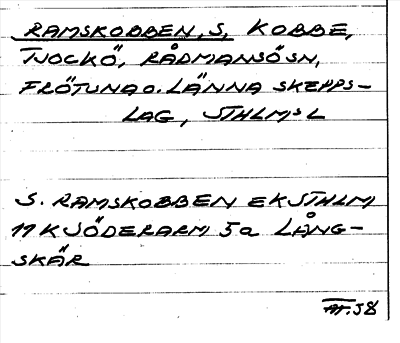 RAMSKOBBEN, S, KOBBE,
TJOCKÖ, RÅDMANSÖ SN,
FRÖTUNA O. LÄNNA SKEPPS-
LAG, STHLMS L
S. RAMSKOBBEN EK STHLM
11K SÖDERARM 5a LÅNG-
SKÄR
58